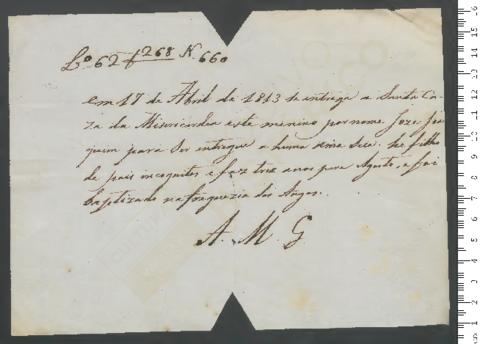 Lº 62 f 268 N. 660
em 17 de Abril de 1813 se entrega a Santa Ca
za da Misericordia este menino por nome Joze Joa
quim para ser intregue a huma sua dea, he filho
de pais incognitos e faz tres anos para Agosto, e foi
baptizado na freguezia dos Anjos.
A. M. G